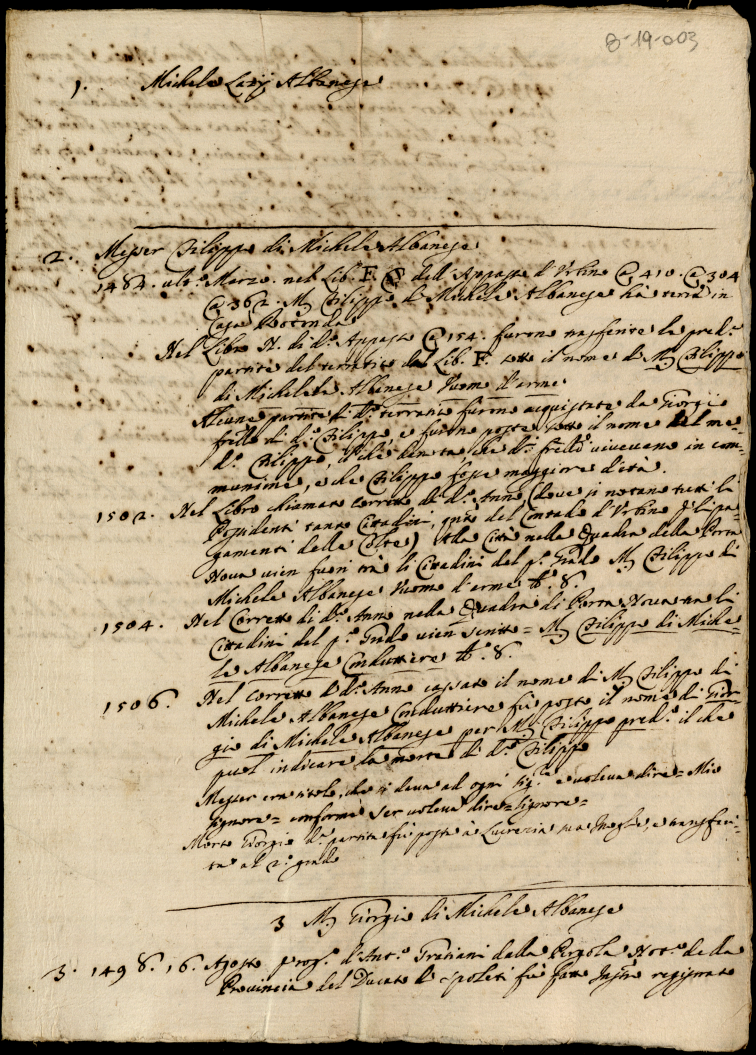 8-19-003
1. Michele Lazij Albanese
2. Messer Filippo di Michele Albanese
1482. ulto. Marzo. nel Lib. F. dell'Appasso d'Urbino @ 410. @ 304
@ 362. M. Filippo di Michele Albanese hà terra in
Case Rotonda.
Nel Libro N. di do. Appasso @ 154. furono trasferite le pred.e
partite del terratico dal Lib. F. sotto il nome di M. Filippo
di Michele Albanese Huomo d'arme.
Alcune partite di do. terratico furono acquistate da Giorgio
frello di do. Filippo, e furono poste sotto il nome del me-
do. Filippo, il che denota, che di frelli vivevano in com-
munione, e che Filippo fosse maggiore d'età.
1502. Nel Libro chiamato Corretto di do. Anno (dove si notano tutti li
Possidenti tanto Cittadini, quto del Contado d'Urbino p li pa-
gamenti delle Colte) della Città nella Quadra della Porta
Nova vien fuori trà li Cittadini del po. Grado M. Filippo di
Michele Albanese Huomo d'arme tb. 8.
1504. Nel Corretto di do. Anno nella Quadra di Porta Nova tra li
Cittadini del po. Grado vien scritto = M. Filippo di Miche-
le Albanese Conduttiere tb. 8.
1506. Nel Corretto di do. Anno cassato il nome di M. Filippo di
Michele Albanese Conduttiere fù posto il nome di Gior-
gio di Michele Albanese per M. Filippo predo. il che
puol indicare la morte di do. Filippo
Messer era titolo, che si dava ad ogni Sigre e voleva dire = Mio
Signore = conforme Ser voleva dire = Signore =
Morto Giorgio da. partita fù posta à Lucrezia sua Moglie, e transferi-
ta al 2o. grado
3 M. Giorgio di Michele Albanese
3. 1498. 16. Agosto progo. d'Anto. Graziani dalla Pergola Noto. della
Provincia del Ducato di Spoleti fù fatto registrato